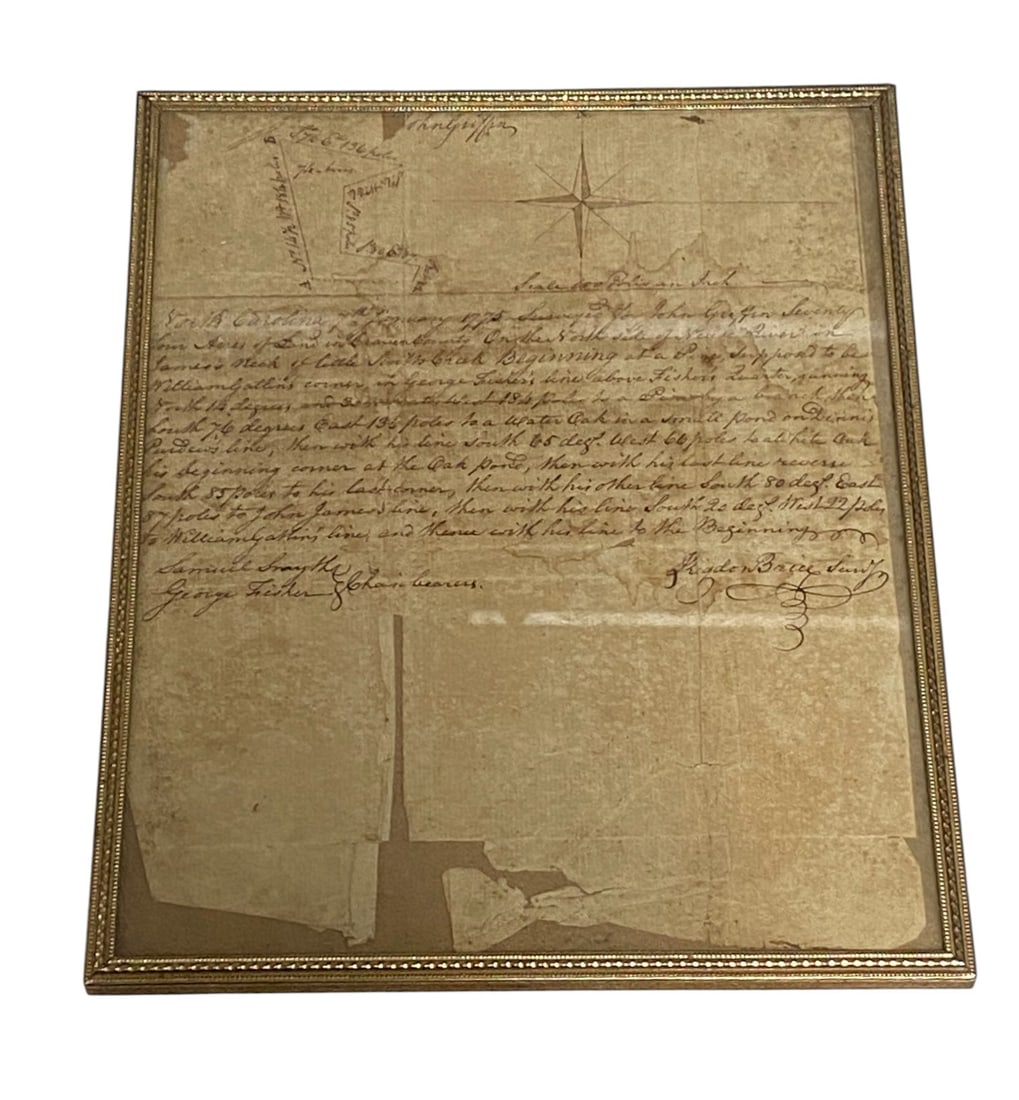 John Griffin
S 76 E 136 poles
N 14 W 136 poles
Scale 100 Poles an Inch
North Carolina, January 1775 Surveyed for John Griffin Seventy
four Acres of Land in Craven County On the North side of Neuse River in
James's Neck of little Swifts Creek Beginning at a Pine, Supposed to be
William Gatlin's corner, in George Fisher's line above Fisher's Quarter, running
North 14 degrees and West 136 poles to a then
South 76 degrees East 136 poles to a Water Oak in a small pond on Dennis
line, then with his line South 65 degs. West 66 poles to a White Oak
his beginning corner at the Oak pond, then with his last line reverse
South 85 poles to his last corner, then with his other line South 80 degs. East
87 poles to John James's line, then with his line South 20 degs. West 22 poles
to William Gatlin's line, and thence with his line to the Beginning
Samuel Smyth
George Fisher } Chain bearers.
Risdon Brice Surv.